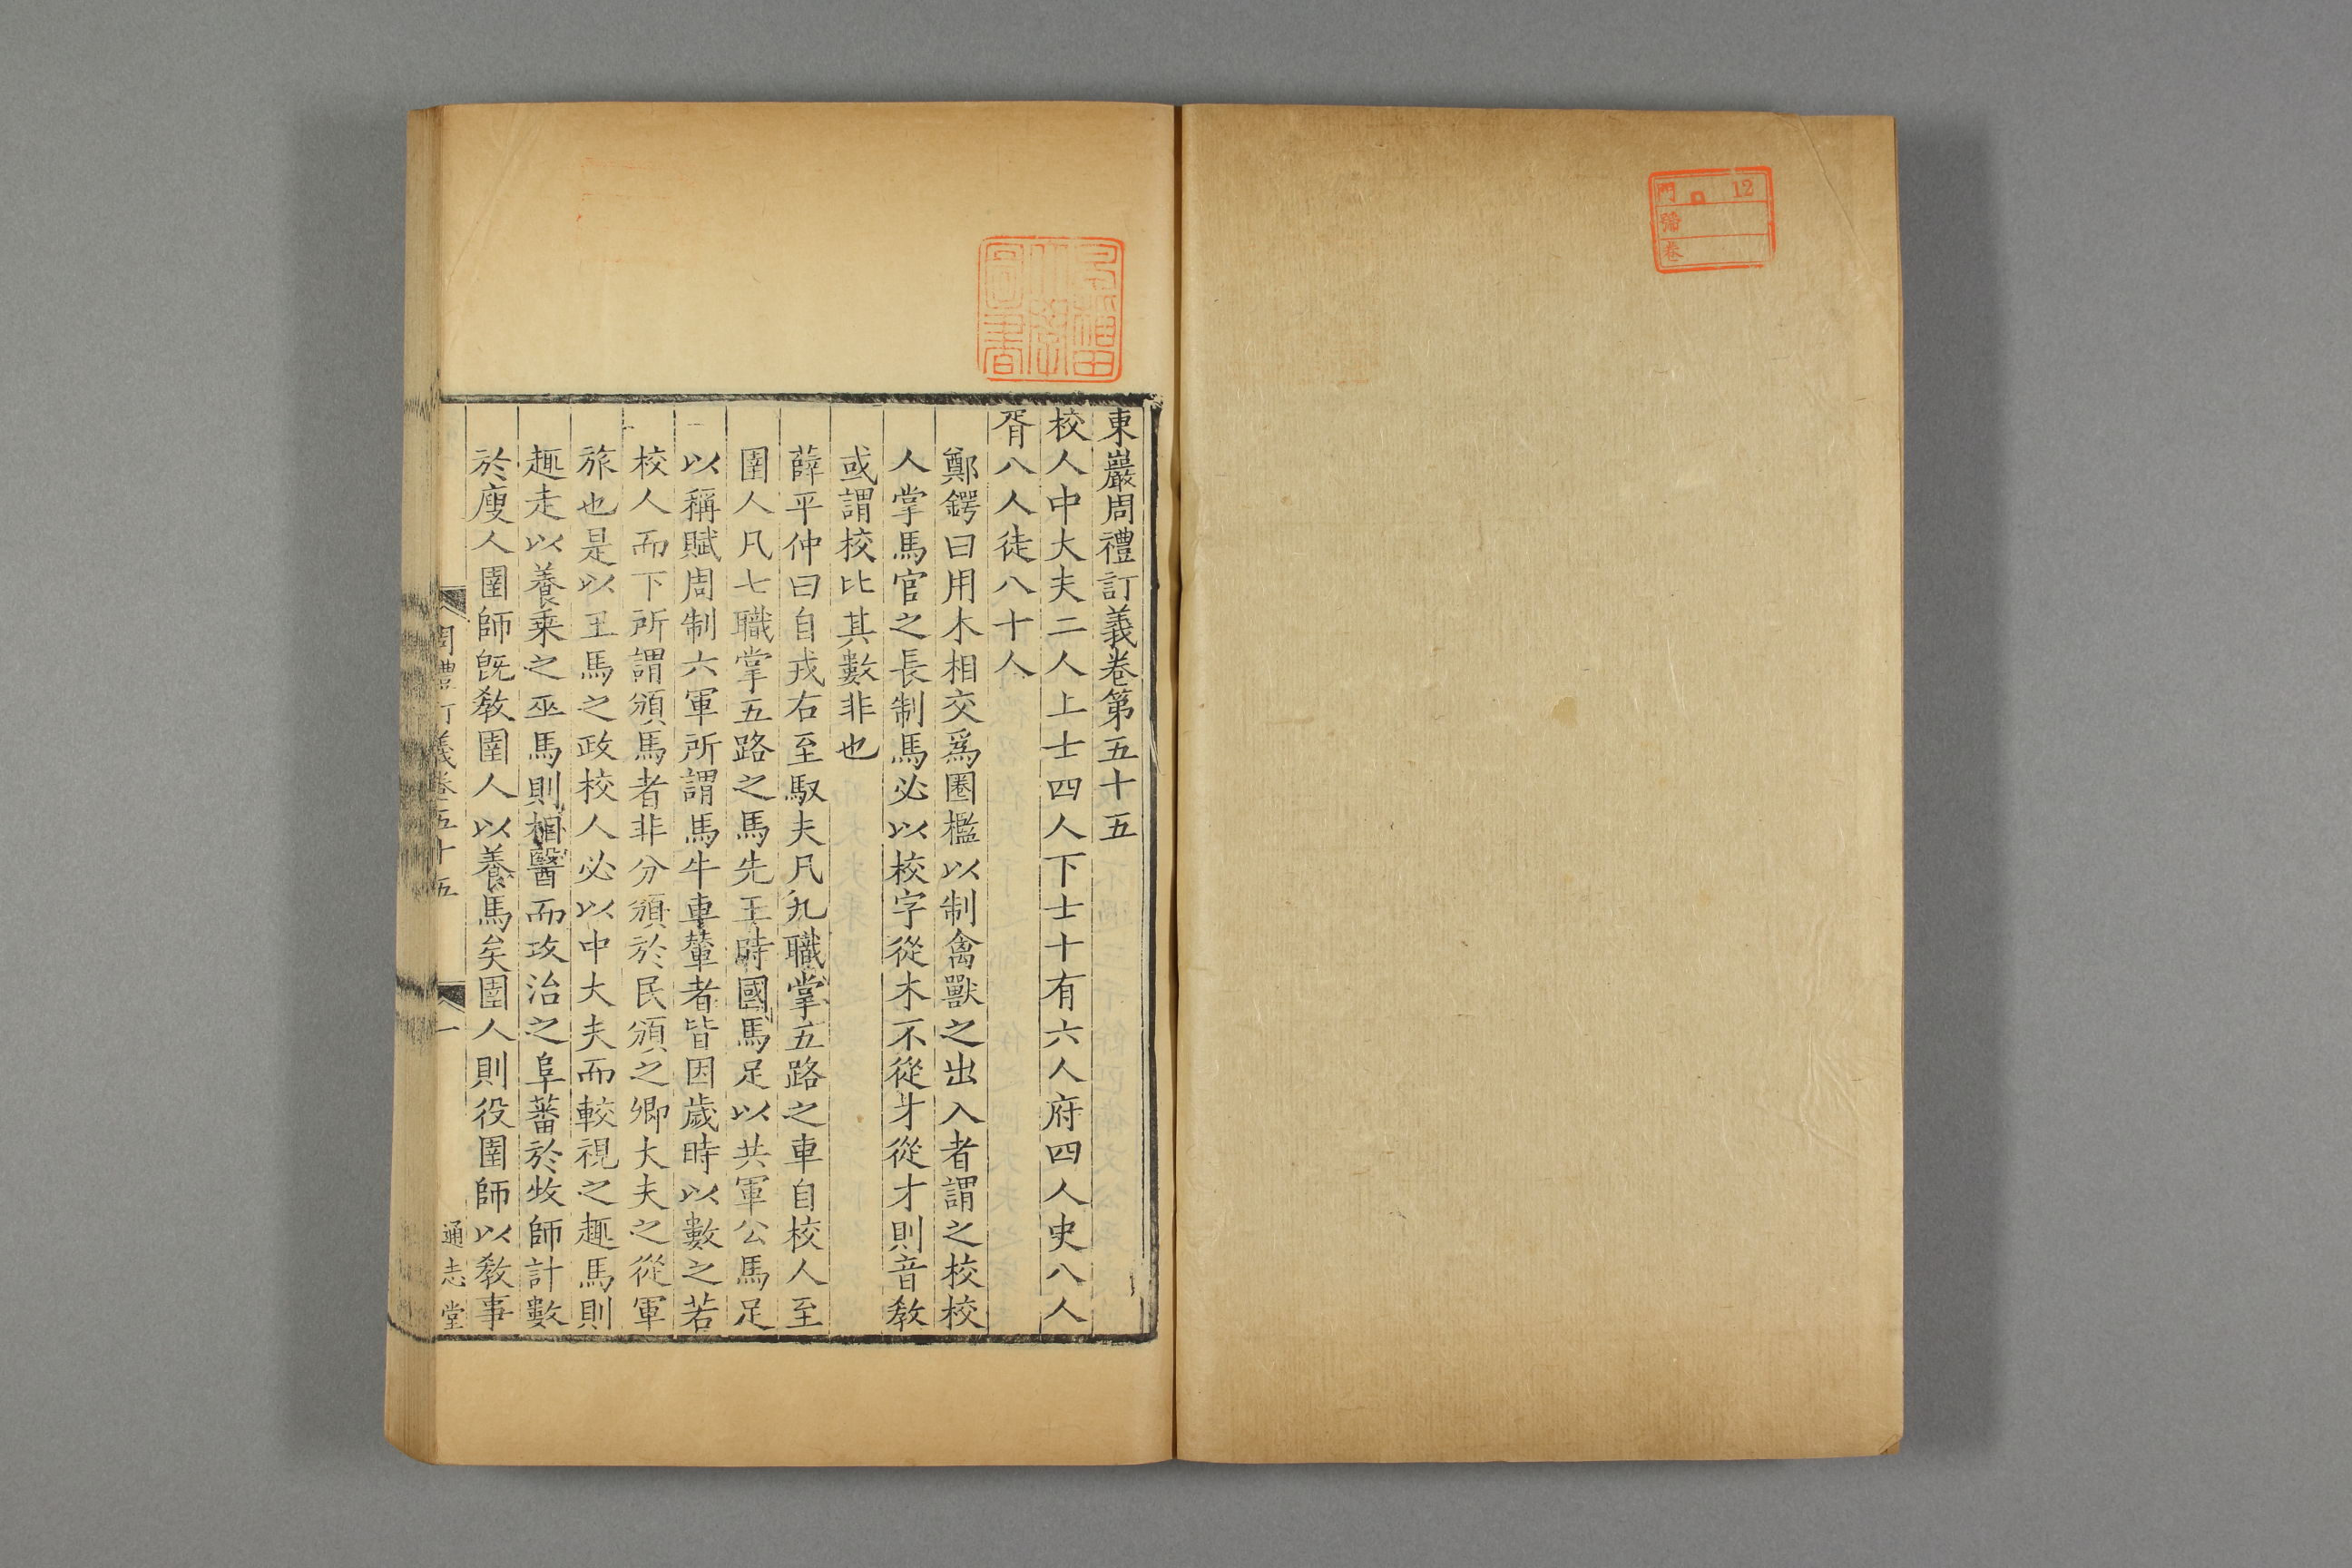 門 口 12
號
卷
東巖周禮訂義卷第五十五
校人中大夫二人上士四人下士十有六人府四人史八人
胥八人徒八十人
鄭鍔曰用木相交爲圈檻以制禽獸之出入者謂之校校
人掌馬官之長制馬必以校字從木不從才從才則音教
或謂校比其數非也
薛平仲曰自戎右至馭夫凡九職掌五路之車自校人至
圉人凡七職掌五路之馬先王時國馬足以共軍公馬足
以稱賦周制六軍所謂馬牛車輦者皆因歲時以數之若
校人而下所謂頒馬者非分頒於民頒之卿大夫之從軍
旅也是以王馬之政校人必以中大夫而較視之趣馬則
趣走以養乘之巫馬則相醫而攻治之阜蕃於牧師計數
於廋人圉師旣教圉人以養馬矣圉人則役圉師以教事
周禮訂義卷五十五
一
通志堂